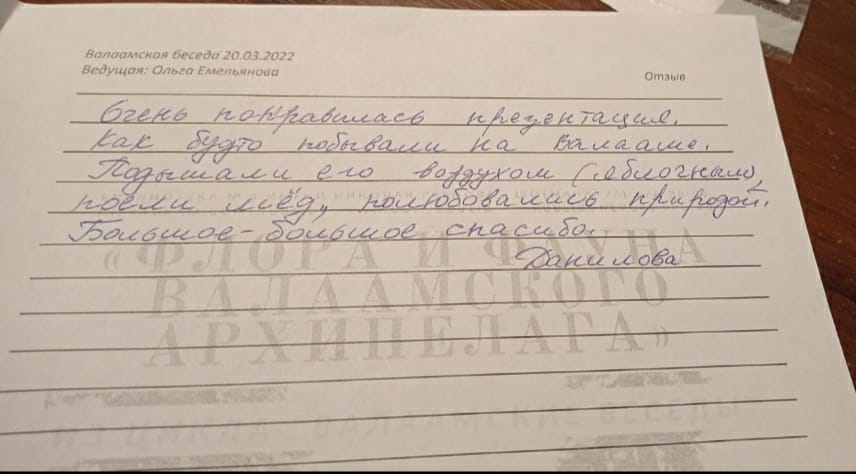 Валаамская беседа 20.03.2022
Ведущая: Ольга Емельянова
Отзыв
Очень понравилась презентация.
Как будто побывали на Валааме.
Подышали его воздухом (яблочным),
поели мёд, полюбовались природой.
Большое-большое спасибо.
Данилова
«ФЛОРА И ФАУНА
ВАЛААМСКОГО
АРХИПЕЛАГА»
ИЗ ЦИКЛА "ВАЛААМСКИЕ БЕСЕДЫ"